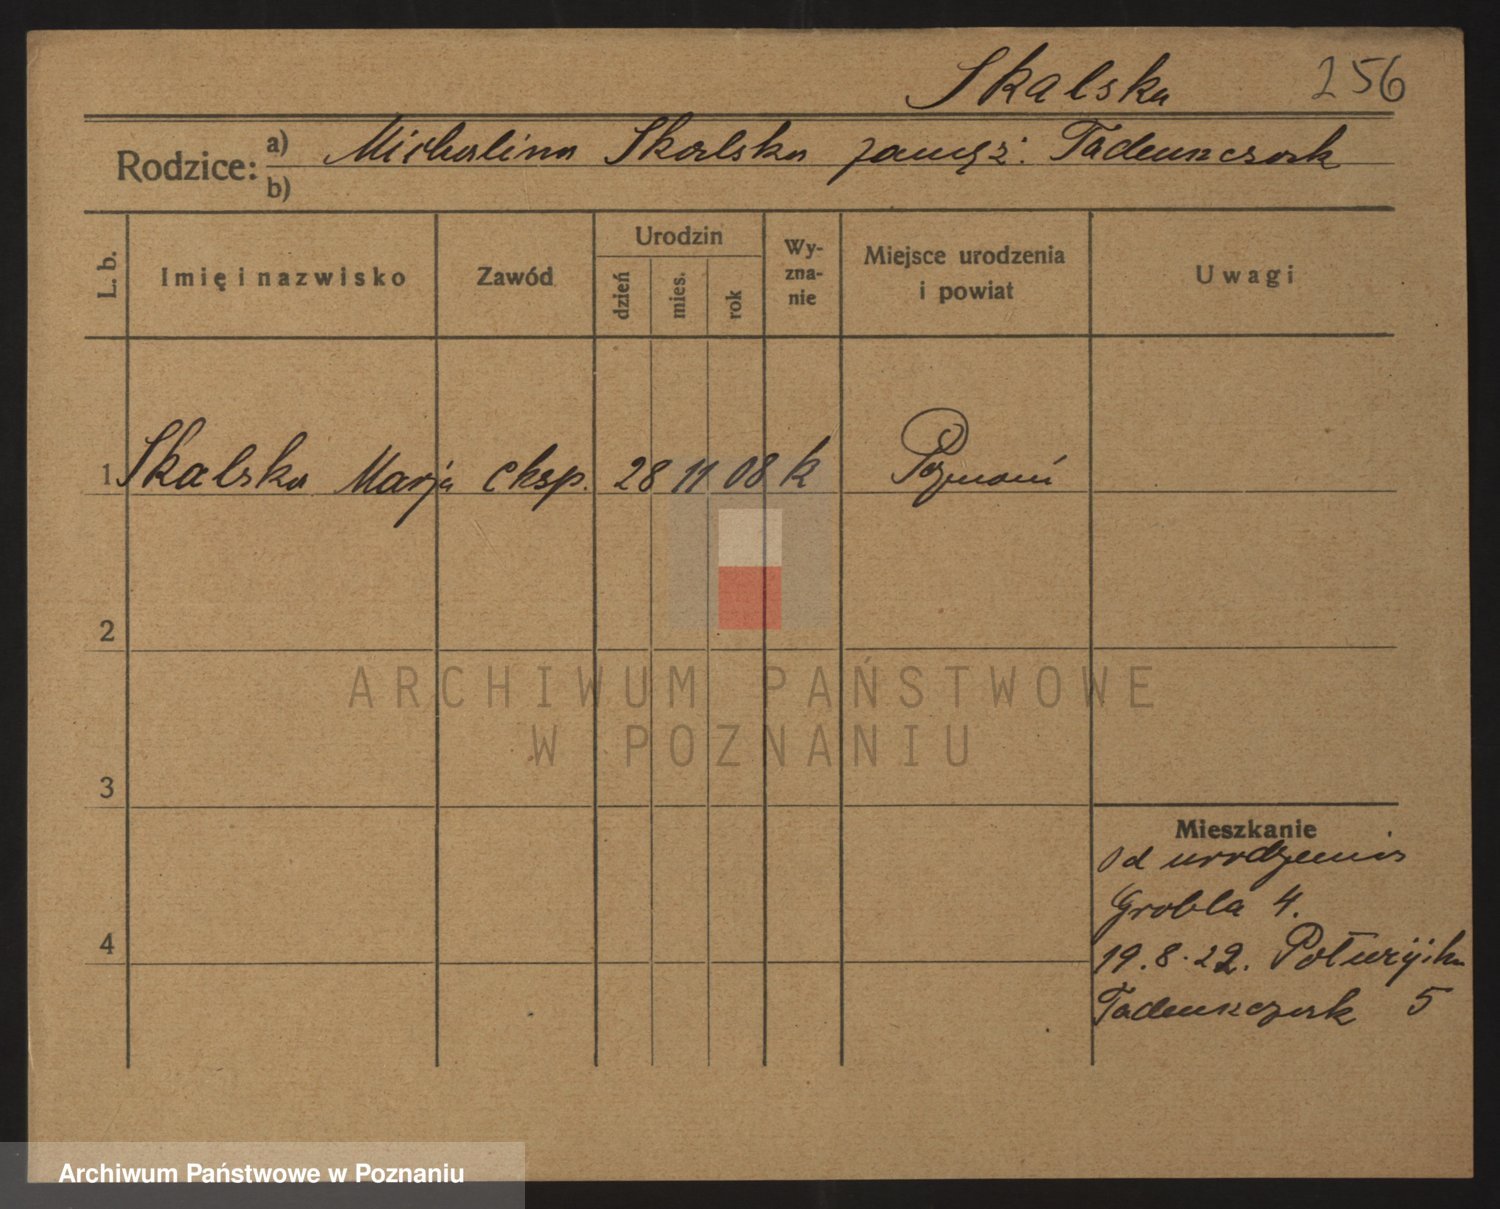 Skalska 256
Rodzice: a) Michalina Skalska zamęż. Tadeuszczak
b)
L. b. Imię i nazwisko Zawód Urodzin dzień mies. rok Wy-zna-nie Miejsce urodzenia i powiat Uwagi
1 Skalska Marja eksp. 28 11 08 k Poznań
2
3
4
Mieszkanie
Od urodzenia
Grobla 4.
19.8.22.
Tadeuszczak 5
ARCHIWUM PAŃSTWOWE
W POZNANIU
Archiwum Państwowe w Poznaniu